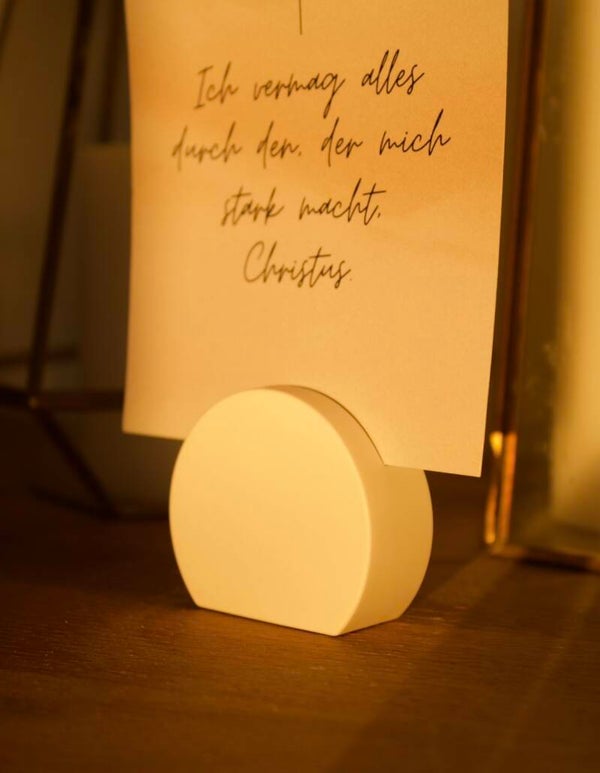 Ich vermag alles
durch den, der mich
stark macht,
Christus.